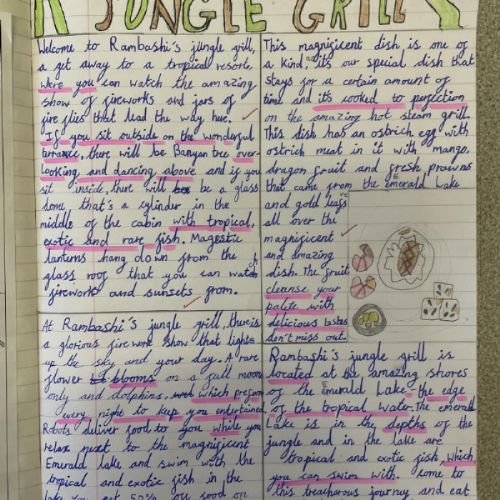 JUNGLE GRILL
Welcome to Rambashi's jungle grill,
a get away to a tropical resort,
Were you can watch the amazing
show of fireworks and jars of
fire flies that lead the way hue.
If you sit outside on the wonderful
terrance, there will be Banyan tree over-
looking and dancing above and if you
sit inside, there will be a glass
dome, that's a cylinder in the
middle of the cabin with tropical,
exotic and rare fish. Magestic
lanterns hang down from the
glass roof that you can watch
fireworks and sunsets from.
At Rambashi's jungle grill, there is
a glorious firework show that lights
up the sky and your day. A rare
flower blooms on a full moon
only and dolphins, which preform
every night to keep you entertained.
Robots deliver food to you while you
relax next to the magnificent
Emerald lake and swim with the
tropical and exotic fish in the
lake. You get 50% our food on
This magnificent dish, is one of
a kind, it's our special dish that
stays for a certain amount of
time and it's cooked to perfection
on the amazing hot steam grill.
This dish has an ostrich egg with
ostrich meat in it with mango,
dragon fruit and fresh prawns
that came from the emerald Lake
and gold leafs
all over the
magnificent
and amazing
dish. The fruit
cleanse your
palete with
delicious tastes
don't miss out.
Rambashi's jungle grill is
located at the amazing shores
of the emerald Lake - the edge
of the tropical water. The emerald
Lake is in the depths of the
jungle and in the lake are
tropical and exotic fish, which
you can swim with. come to
this treacharous journey and eat